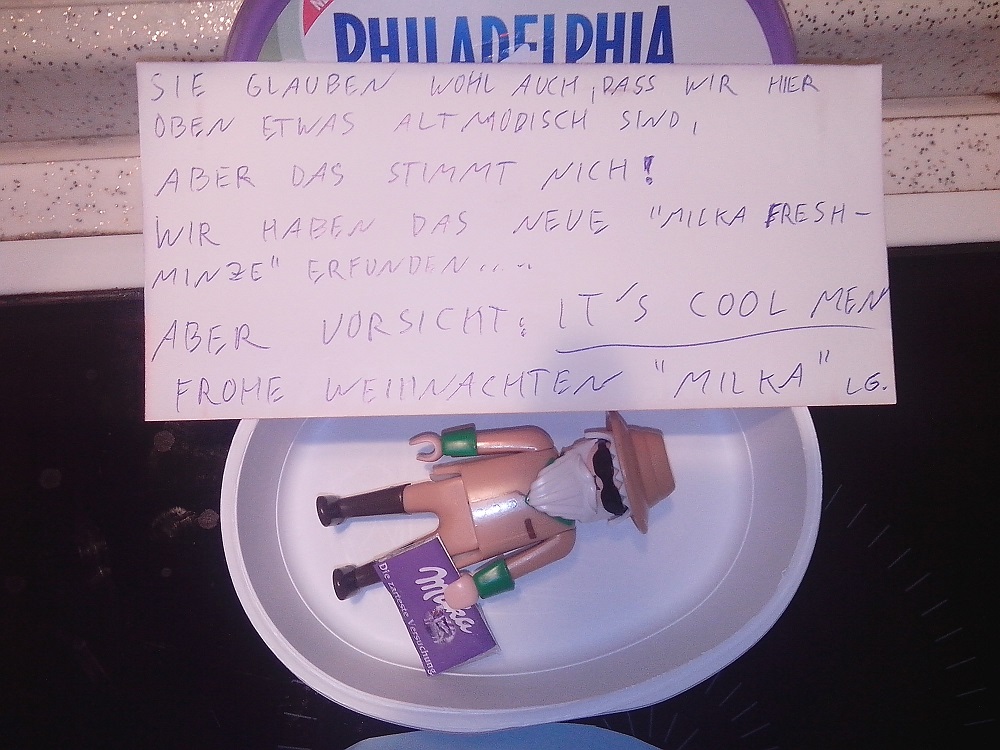 PHILADELPHIA
SIE GLAUBEN WOHL AUCH, DASS WIR HIER
OBEN ETWAS ALTMODISCH SIND,
ABER DAS STIMMT NICH!
WIR HABEN DAS NEUE "MILKA FRESH-
MINZE" ERFUNDEN.....
ABER VORSICHT: IT'S COOL MEN
FROHE WEIHNACHTEN "MILKA" LG.
Milka
Die zarteste Versuchung